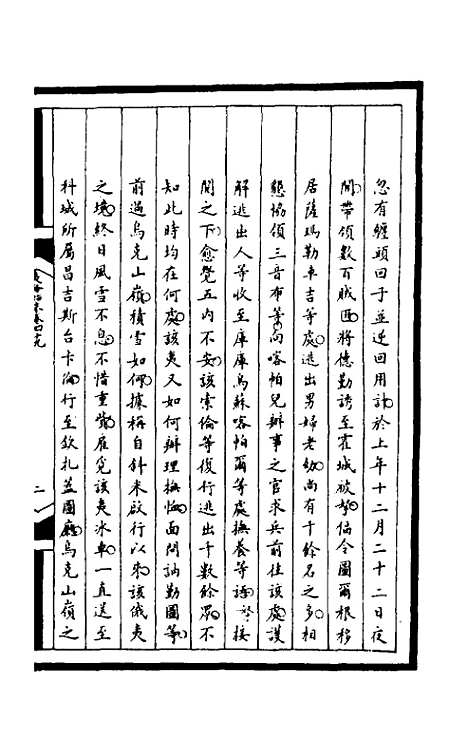 忽有纏頭回子並逆回用計於上年十二月二十二日夜
間帶領數百賊匪將德勤誘至霍城被拏偪令圖爾根移
居薩瑪勒車吉等處逃出男婦老幼尚有千餘名之多相
懇協領三音布等向喀帕兒辦事之官求兵前往該處護
解逃出人等收至庫庫烏蘇喀帕爾等處撫養等語奴才接
閱之下愈覺五內不安該索倫等復行逃出千數餘眾不
知此時均在何處該夷又如何辦理撫恤面問訥勤圖等
前過烏克山嶺積雪如何據稱自斜米啟行以來該俄夷
之境終日風雪不息不惜重貲雇覓該夷冰車一直送至
科城所屬昌吉斯台卡倫行至欽札蓋圖廠烏克山嶺之
二